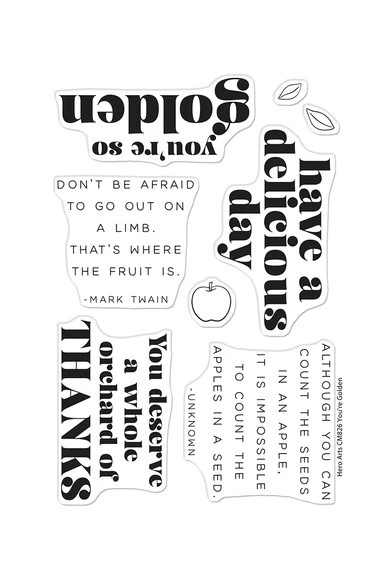 you're so
golden
have a
delicious
day
DON'T BE AFRAID
TO GO OUT ON
A LIMB.
THAT'S WHERE
THE FRUIT IS.
-MARK TWAIN
You deserve
a whole
orchard of
THANKS
ALTHOUGH YOU CAN
COUNT THE SEEDS
IN AN APPLE,
IT IS IMPOSSIBLE
TO COUNT THE
APPLES IN A SEED.
-UNKNOWN
Hero Arts CM826 You're Golden